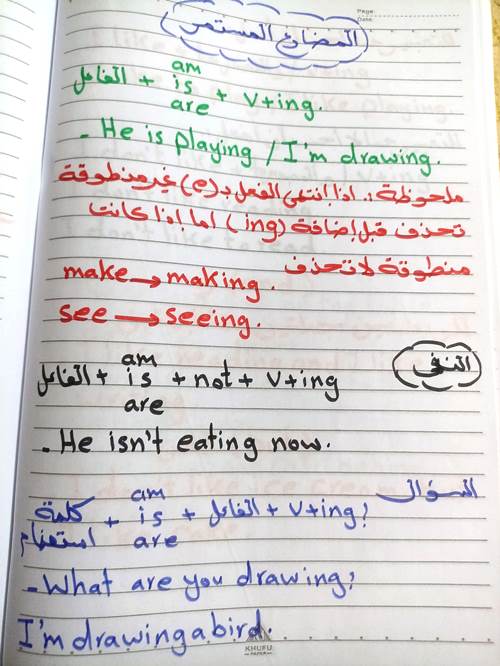 Page:
Date:
(المضارع المستمر)
am
الفاعل + is + v+ing.
are
- He is playing / I'm drawing.
ملحوظة:. اذا إنتهى الفعل بـ(e) غير منطوقة
تحذف قبل إضافة (ing) اما إذا كانت
منطوقة لا تحذف
make → making.
see → seeing.
(النفى)
am
الفاعل + is + not + v+ing
are
- He isn't eating now.
السؤال
am
كلمة + is + الفاعل + v+ing?
استفهام are
- What are you drawing?
I'm drawing a bird.
KHUFU
PAPER